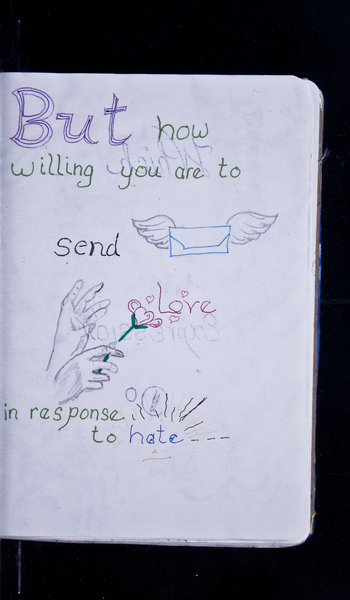 But how
willing you are to
send
Love
in response
to hate ---